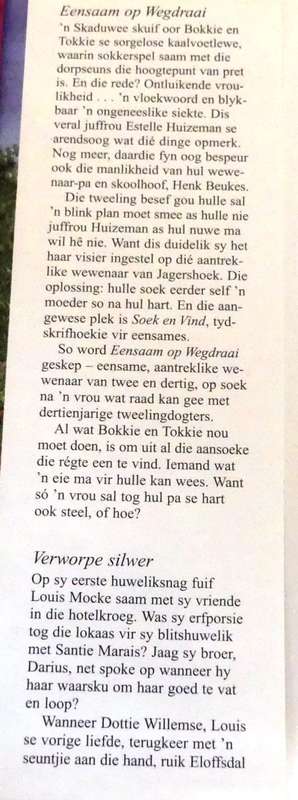 Eensaam op Wegdraai
'n Skaduwee skuif oor Bokkie en
Tokkie se sorgelose kaalvoetlewe,
waarin sokkerspel saam met die
dorpseuns die hoogtepunt van pret
is. En die rede? Ontluikende vrou-
likheid . . . 'n vloekwoord en blyk-
baar 'n ongeneeslike siekte. Dis
veral juffrou Estelle Huizeman se
arendsoog wat dié dinge opmerk.
Nog meer, daardie fyn oog bespeur
ook die manlikheid van hul wewe-
naar-pa en skoolhoof, Henk Beukes.
Die tweeling besef gou hulle sal
'n blink plan moet smee as hulle nie
juffrou Huizeman as hul nuwe ma
wil hê nie. Want dis duidelik sy het
haar visier ingestel op dié aantrek-
like wewenaar van Jagershoek. Die
oplossing: hulle soek eerder self 'n
moeder so na hul hart. En die aan-
gewese plek is Soek en Vind, tyd-
skrifhoekie vir eensames.
So word Eensaam op Wegdraai
geskep – eensame, aantreklike we-
wenaar van twee en dertig, op soek
na 'n vrou wat raad kan gee met
dertienjarige tweelingdogters.
Al wat Bokkie en Tokkie nou
moet doen, is om uit al die aansoeke
die régte een te vind. Iemand wat
'n eie ma vir hulle kan wees. Want
só 'n vrou sal tog hul pa se hart
ook steel, of hoe?
Verworpe silwer
Op sy eerste huweliksnag fuif
Louis Mocke saam met sy vriende
in die hotelkroeg. Was sy erfporsie
tog die lokaas vir sy blitshuwelik
met Santie Marais? Jaag sy broer,
Darius, net spoke op wanneer hy
haar waarsku om haar goed te vat
en loop?
Wanneer Dottie Willemse, Louis
se vorige liefde, terugkeer met 'n
seuntjie aan die hand, ruik Eloffsdal